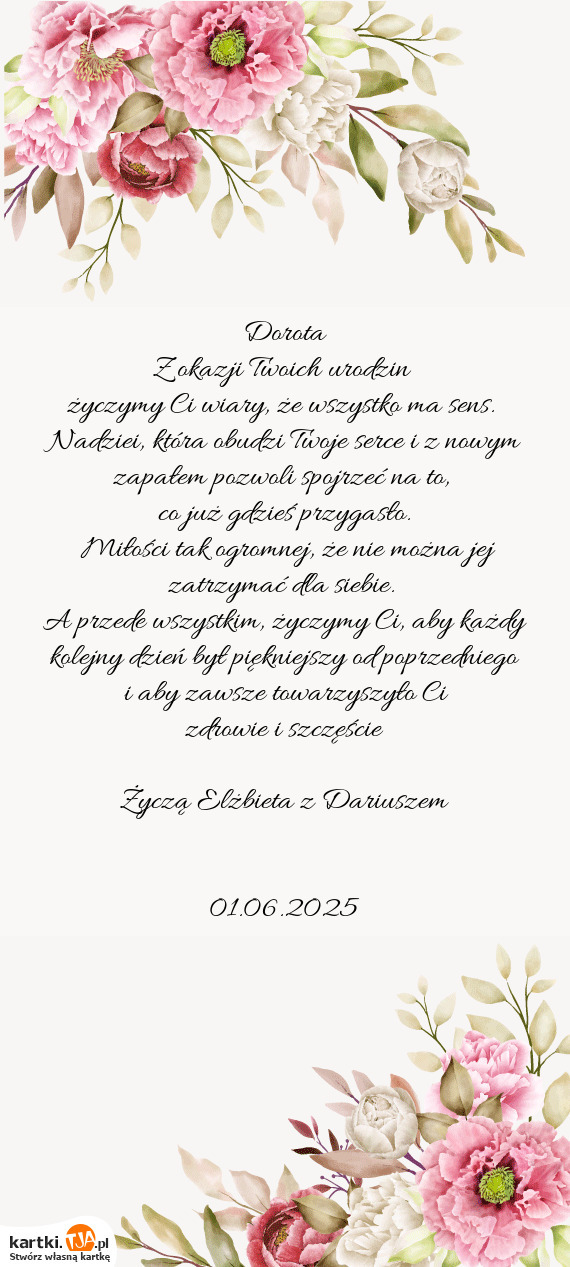 Dorota
Z okazji Twoich urodzin
życzymy Ci wiary, że wszystko ma sens.
Nadziei, która obudzi Twoje serce i z nowym
zapałem pozwoli spojrzeć na to,
co już gdzieś przygasło.
Miłości tak ogromnej, że nie można jej
zatrzymać dla siebie.
A przede wszystkim, życzymy Ci, aby każdy
kolejny dzień był piękniejszy od poprzedniego
i aby zawsze towarzyszyło Ci
zdrowie i szczęście
Życzą Elżbieta z Dariuszem
01.06.2025
kartki.TJA.pl
Stwórz własną kartkę